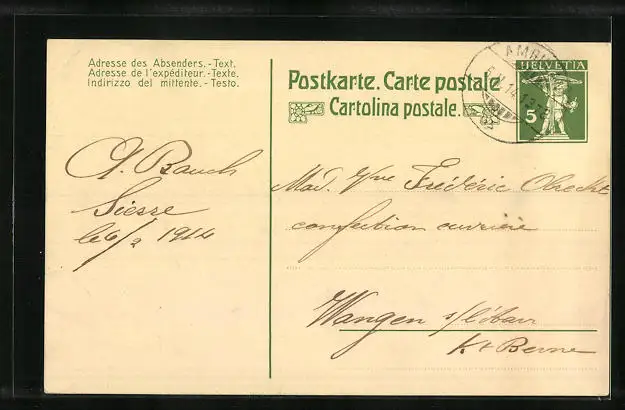 Adresse des Absenders.-Text.
Adresse de l'expéditeur.-Texte.
Indirizzo del mittente.-Testo.
Postkarte. Carte postale
Cartolina postale.
HELVETIA
5
AMBU
Rauch
Sierre
le 6/2 1914
Mad. Vve Frédéric Obrecht
confection ouvrière
Wangen s/l'Aar
Kt Berne